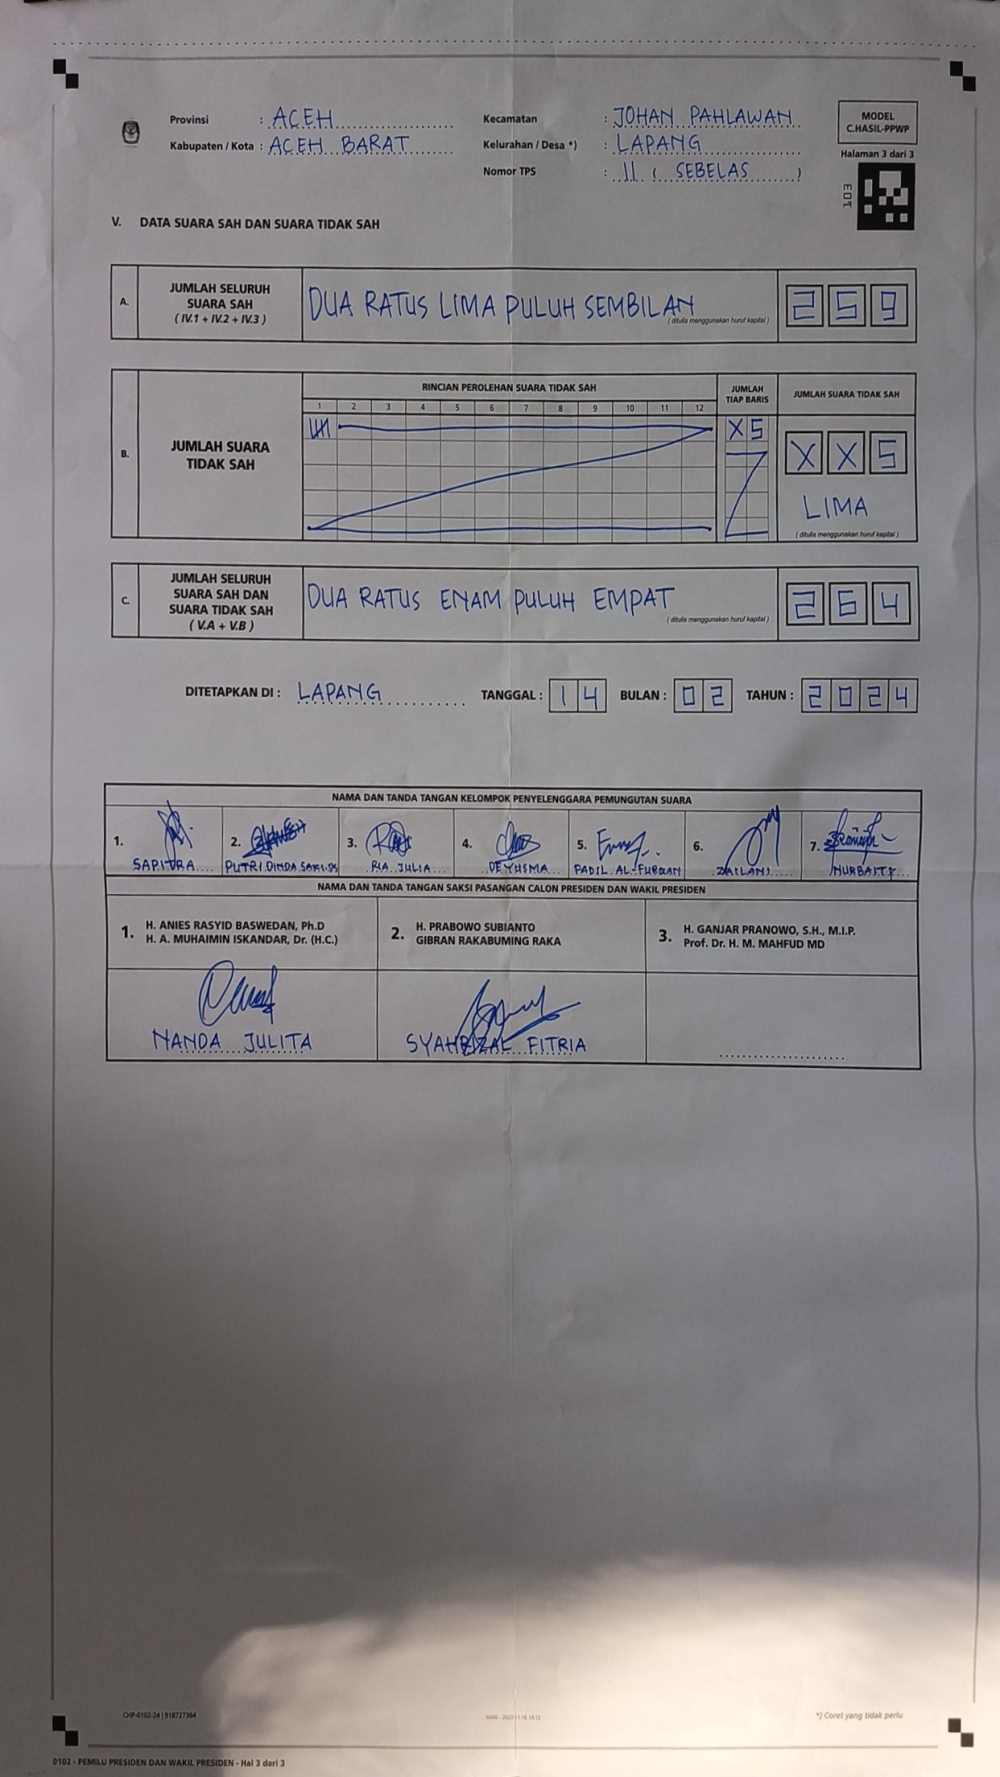 Provinsi : ACEH
Kabupaten / Kota : ACEH BARAT
Kecamatan : JOHAN PAHLAWAN
Kelurahan / Desa *) : LAPANG
Nomor TPS : 11 ( SEBELAS )
MODEL
C.HASIL-PPWP
Halaman 3 dari 3
V. DATA SUARA SAH DAN SUARA TIDAK SAH
A. JUMLAH SELURUH
SUARA SAH
( IV.1 + IV.2 + IV.3 )
DUA RATUS LIMA PULUH SEMBILAN
( ditulis menggunakan huruf kapital )
2 5 9
B. JUMLAH SUARA
TIDAK SAH
RINCIAN PEROLEHAN SUARA TIDAK SAH
1 2 3 4 5 6 7 8 9 10 11 12
JUMLAH
TIAP BARIS
X 5
JUMLAH SUARA TIDAK SAH
X X 5
LIMA
( ditulis menggunakan huruf kapital )
C. JUMLAH SELURUH
SUARA SAH DAN
SUARA TIDAK SAH
( V.A + V.B )
DUA RATUS ENAM PULUH EMPAT
( ditulis menggunakan huruf kapital )
2 6 4
DITETAPKAN DI : LAPANG TANGGAL : 1 4 BULAN : 0 2 TAHUN : 2 0 2 4
NAMA DAN TANDA TANGAN KELOMPOK PENYELENGGARA PEMUNGUTAN SUARA
1. 2. 3. 4. 5. 6. 7.
SAPUTRA PUTRI DINDA RIA JULIA DEYUSMA FADIL AL-FURQAN ZAILANI
NAMA DAN TANDA TANGAN SAKSI PASANGAN CALON PRESIDEN DAN WAKIL PRESIDEN
1. H. ANIES RASYID BASWEDAN, Ph.D
H. A. MUHAIMIN ISKANDAR, Dr. (H.C.)
2. H. PRABOWO SUBIANTO
GIBRAN RAKABUMING RAKA
3. H. GANJAR PRANOWO, S.H., M.I.P.
Prof. Dr. H. M. MAHFUD MD
NANDA JULITA
SYAHRIZAL FITRIA
CHP-0102-24 | 918727364
*) Coret yang tidak perlu
0102 - PEMILU PRESIDEN DAN WAKIL PRESIDEN - Hal 3 dari 3